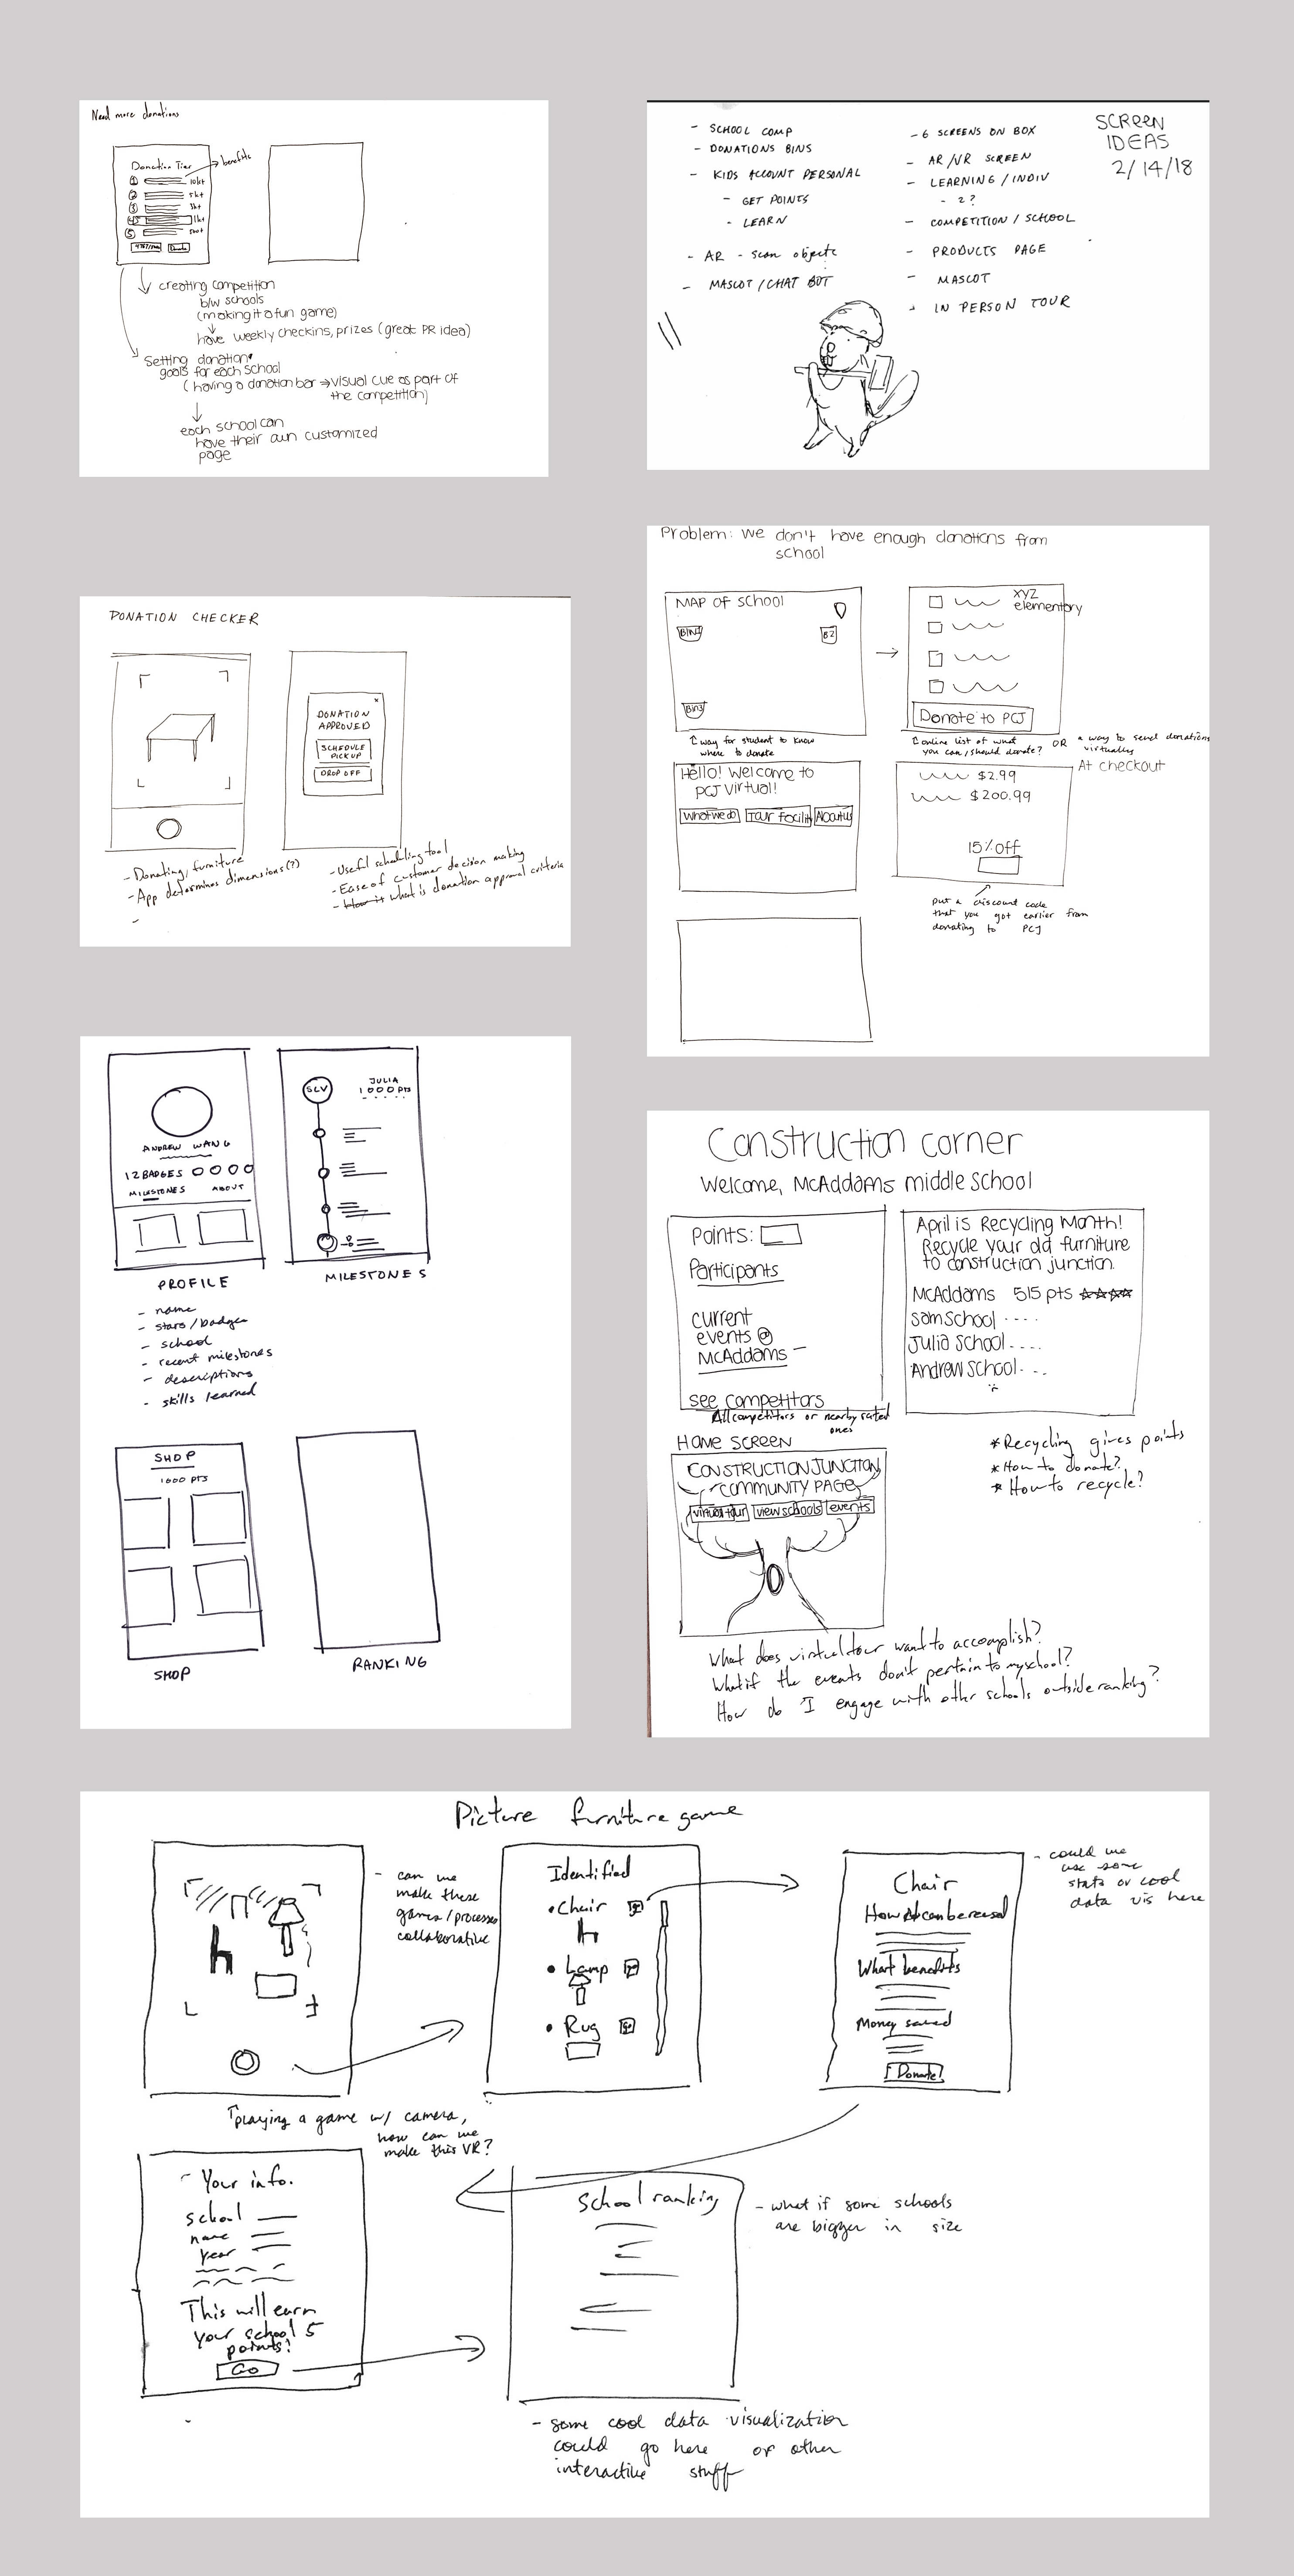 Need more donations
Donation Tier
benefits
1
10k+
2
5k+
3
3k+
1k+
5
500+
Donate
creating competition
b/w schools
(making it a fun game)
have weekly checkins, prizes (great PR idea)
Setting donation
goals for each school
(having a donation bar → visual cue as part of
the competition)
each school can
have their own customized
page
SCREEN
IDEAS
2/14/18
- SCHOOL COMP
- DONATIONS BINS
- KIDS ACCOUNT PERSONAL
- GET POINTS
- LEARN
- AR - scan objects
- MASCOT / CHAT BOT
- 6 SCREENS ON BOX
- AR/VR SCREEN
- LEARNING / INDIV
- 2?
- COMPETITION / SCHOOL
- PRODUCTS PAGE
- MASCOT
- IN PERSON TOUR
DONATION CHECKER
x
DONATION
APPROVED
SCHEDULE
PICKUP
DROP OFF
- Donating furniture
- App determines dimensions(?)
-
- Useful scheduling tool
- Ease of customer decision making
- How it what is donation approval criteria
Problem: We don't have enough donations from
school
MAP OF SCHOOL
Bin1
B2
Bin3
↑ way for student to know
where to donate
XYZ
elementary
Donate to PCJ
↑ online list of what
you can/should donate?
OR
a way to send donations
virtually
Hello! Welcome to
PCJ virtual!
What we do
Tour facility
About us
At checkout
$2.99
$200.99
15% off
put a discount code
that you got earlier from
donating to PCJ
ANDREW WANG
12 BADGES
MILESTONES ABOUT
PROFILE
SLV
JULIA
1000 PTS
MILESTONES
- name
- stars/badges
- school
- recent milestones
- descriptions
- skills learned
SHOP
1000 PTS
SHOP
RANKING
Construction corner
Welcome, McAddams middle School
Points:
Participants
current
events @
McAddams
see competitors
All competitors or nearby rated
ones
April is Recycling Month!
Recycle your old furniture
to construction junction.
McAddams 515 pts
Sam School ....
Julia School ....
Andrew School ...
HOME SCREEN
CONSTRUCTION JUNCTION
COMMUNITY PAGE
virtual tour
view schools
events
* Recycling gives points
* How to donate?
* How to recycle?
What does virtual tour want to accomplish?
What if the events don't pertain to my school?
How do I engage with other schools outside ranking?
Picture furniture game
- can we
make these
games/processes
collaborative
Identified
• Chair
• Lamp
• Rug
Chair
How it can be reused
What benefits
Money saved
Donate!
- could we
use some
stats or cool
data vis here
↑ playing a game w/ camera,
how can we
make this VR?
Your info.
school
name
year
This will earn
your school 5
points!
Go
School ranking
- what if some schools
are bigger in size
- some cool data visualization
could go here or other
interactive stuff